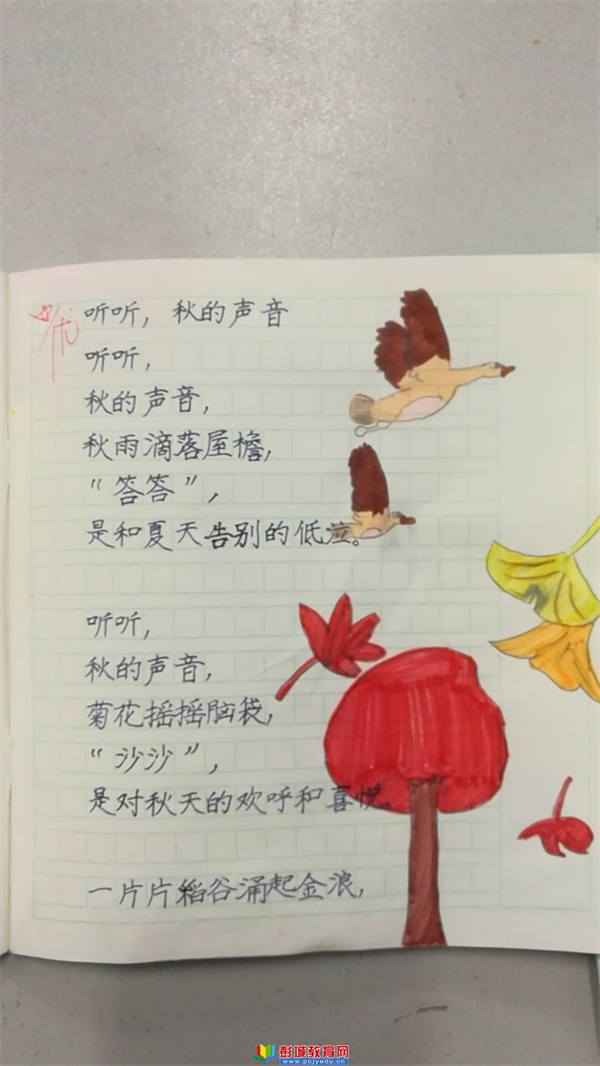 优
听听，秋的声音
听听，
秋的声音，
秋雨滴落屋檐，
“答答”，
是和夏天告别的低泣。
听听，
秋的声音，
菊花摇摇脑袋，
“沙沙”，
是对秋天的欢呼和喜悦。
一片片稻谷涌起金浪，
彭城教育网
www.pcjyedu.cn